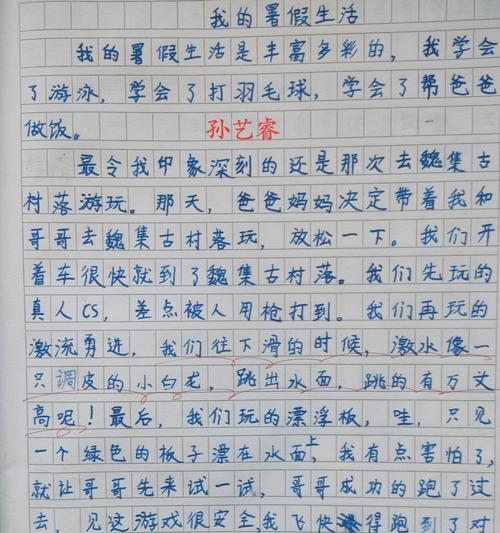 我的暑假生活
我的暑假生活是丰富多彩的，我学会
了游泳，学会了打羽毛球，学会了帮爸爸
做饭。
孙艺睿
最令我印象深刻的还是那次去魏集古
村落游玩。那天，爸爸妈妈决定带着我和
哥哥去魏集古村落玩，放松一下。我们开
着车很快就到了魏集古村落。我们先玩的
真人CS，差点被人用枪打到。我们再玩的
激流勇进，我们往下滑的时候，激水像一
只调皮的小白龙，跳出水面，跳的有万丈
高呢！最后，我们玩的漂浮板，哇，只见
一个绿色的板子漂在水面上，我有点害怕了，
就让哥哥先来试一试，哥哥成功的跑了过
去，见这游戏很安全，我飞快得跑到了对